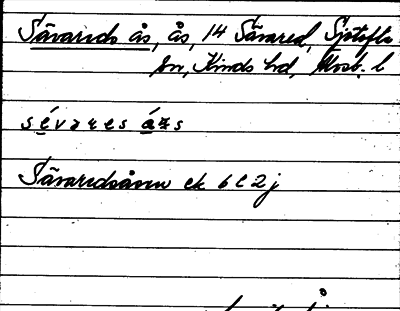 Sävareds ås, ås, 14 Sävared, Sjötofta
sn, Kinds hd, Älvsb. l
sévares ázs
Sävaredsåsen ek 6 C 2 j